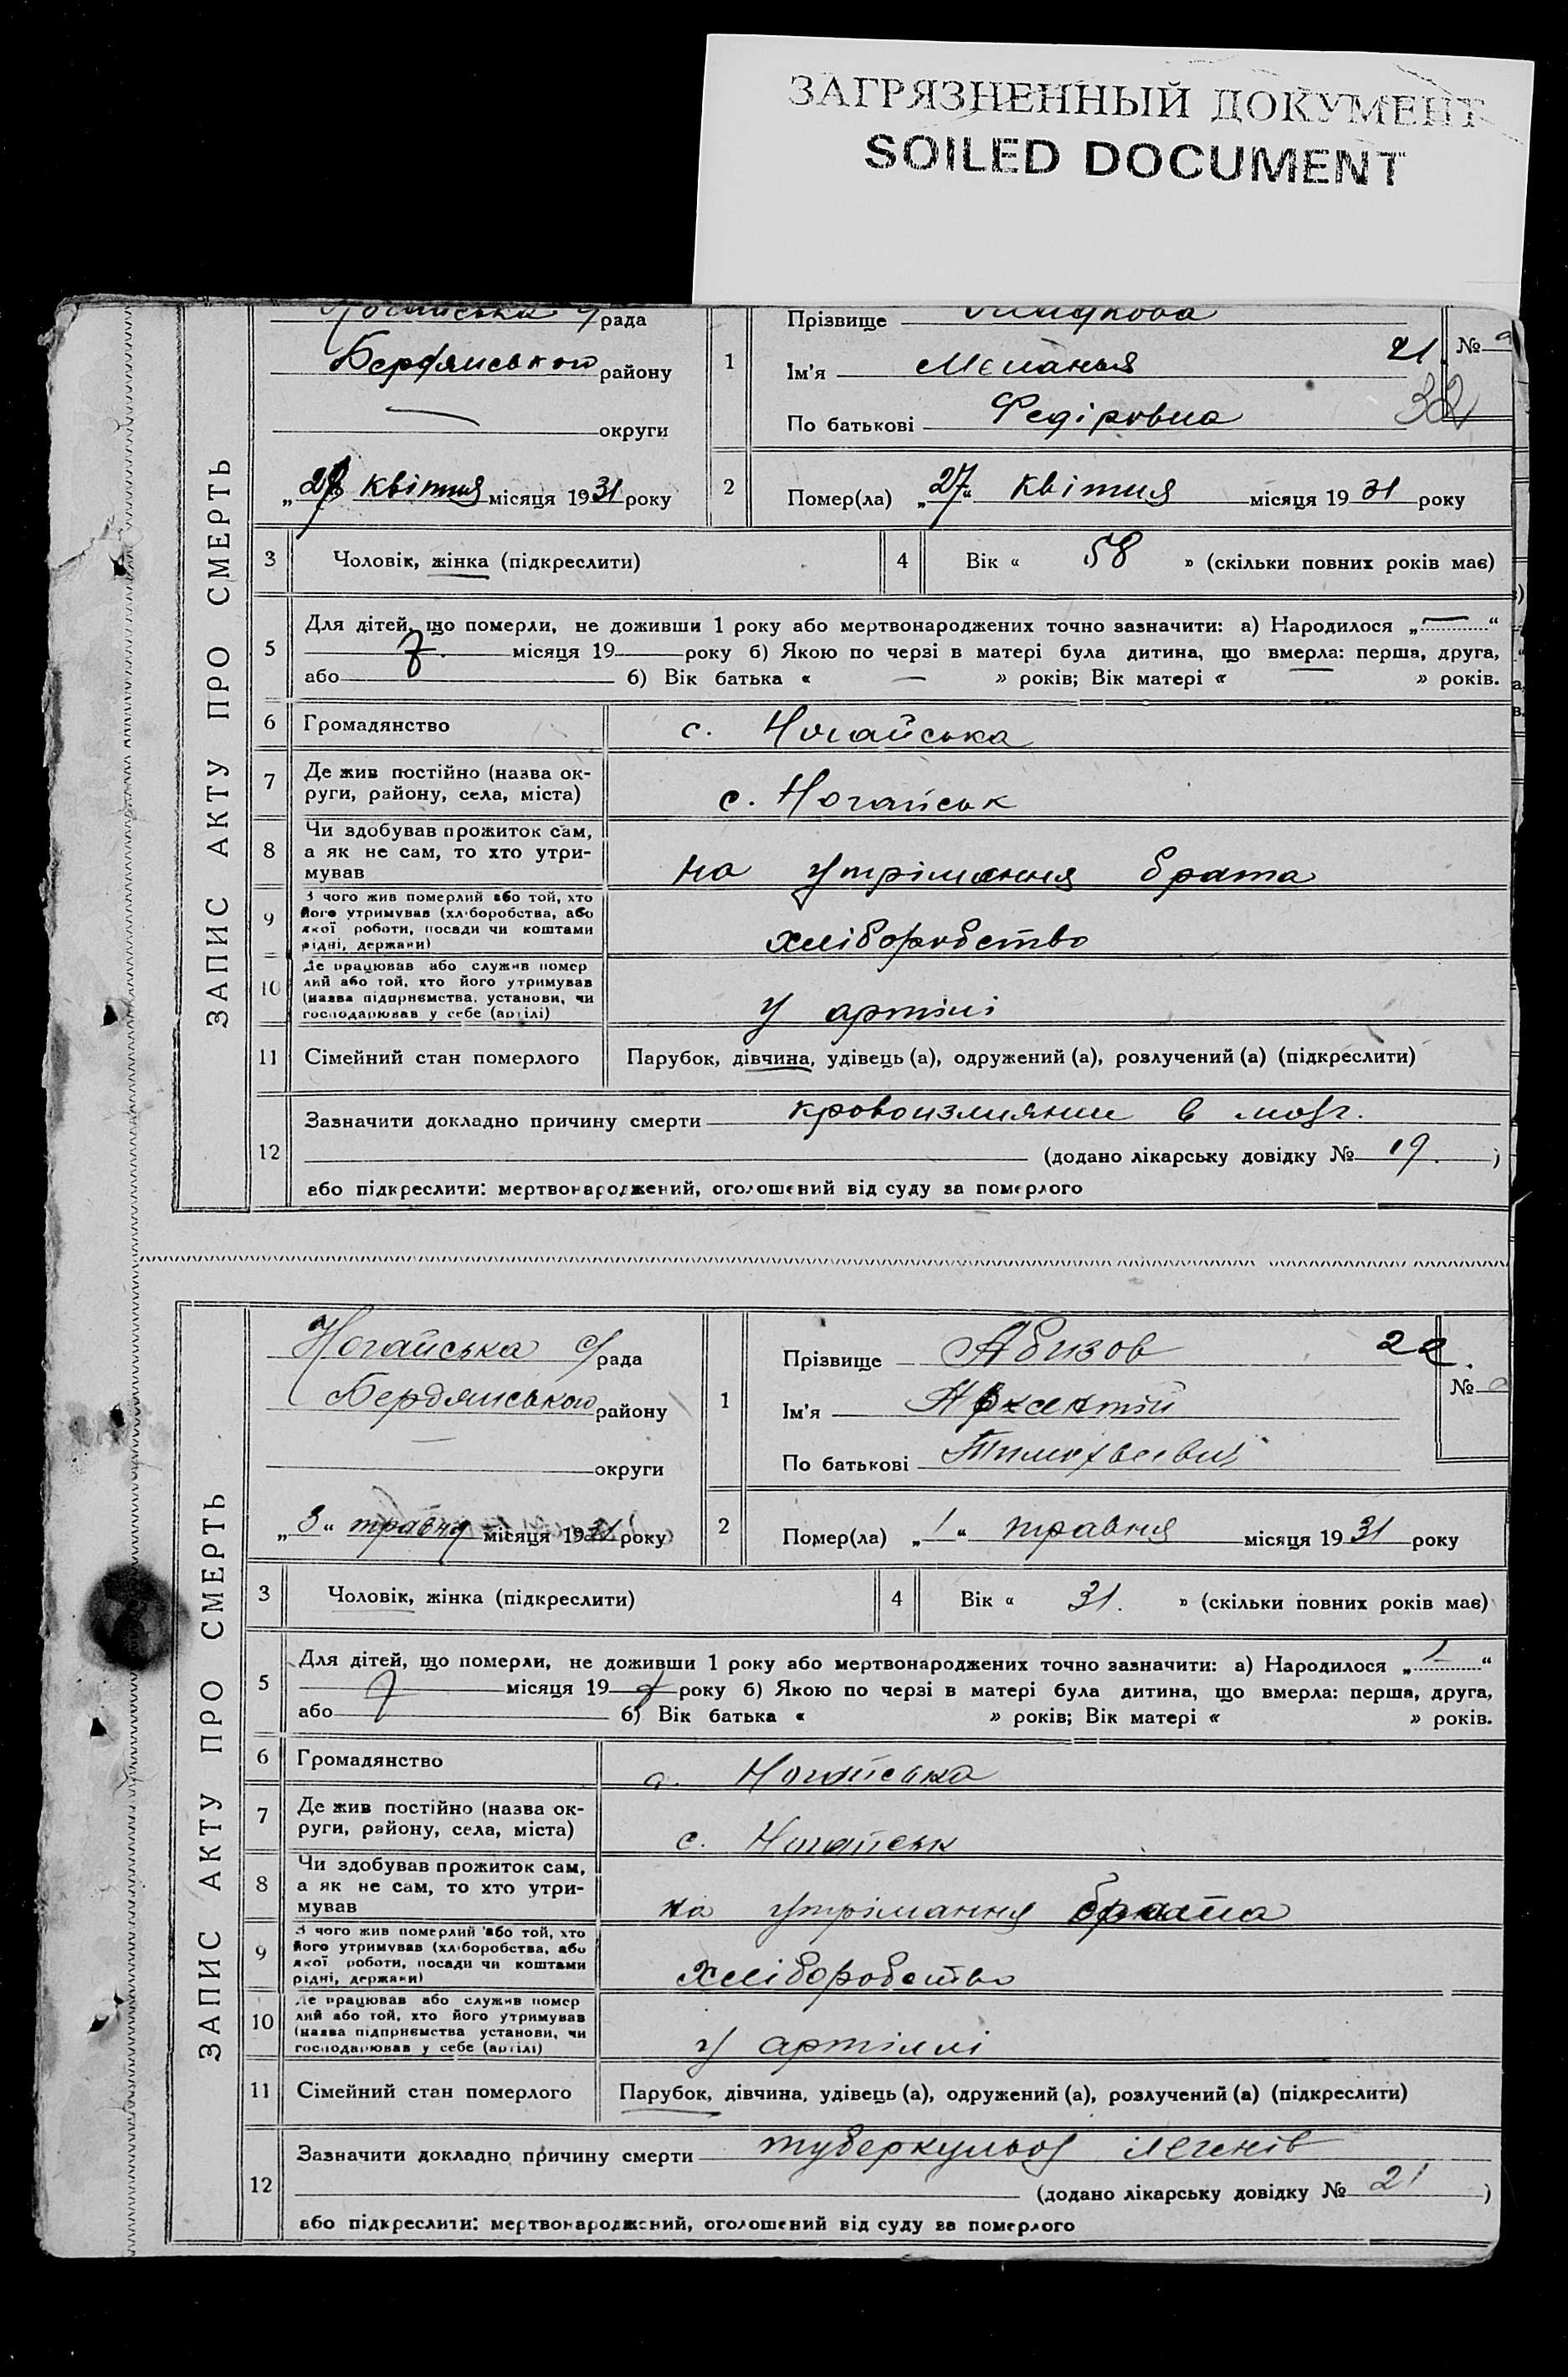 ЗАГРЯЗНЕННЫЙ ДОКУМЕНТ
SOILED DOCUMENT
ЗАПИС АКТУ ПРО СМЕРТЬ
Ногайська с/рада
Бердянського району
округи
„ квітня місяця 1931 року
1
Прізвище
Ім'я Меланья
По батькові Федіровна
21.
32
№
2
Помер(ла) „27“ квітня місяця 1931 року
3 Чоловік, жінка (підкреслити)
4 Вік « 58 » (скільки повних років має)
5 Для дітей, що померли, не доживши 1 року або мертвонароджених точно зазначити: а) Народилося „—“
місяця 19 року б) Якою по черзі в матері була дитина, що вмерла: перша, друга,
або б) Вік батька « — » років; Вік матері « — » років.
6 Громадянство с. Ногайська
7 Де жив постійно (назва ок-
руги, району, села, міста) с. Ногайськ
8 Чи здобував прожиток сам,
а як не сам, то хто утри-
мував на утрімання брата
9 З чого жив померлий або той, хто
його утримував (хліборобства, або
якої роботи, посади чи коштами
рідні, держави) хліборобство
10 Де працював або служив помер
лий або той, хто його утримував
(назва підприємства, установи, чи
господарював у себе (артілі) у артілі
11 Сімейний стан померлого Парубок, дівчина, удівець (а), одружений (а), розлучений (а) (підкреслити)
12 Зазначити докладно причину смерти кровоизлияние в мозг.
(додано лікарську довідку № 19.)
або підкреслити: мертвонароджений, оголошений від суду за померлого
ЗАПИС АКТУ ПРО СМЕРТЬ
Ногайська с/рада
Бердянського району
округи
„3“ травня місяця 1931 року
1
Прізвище Абизов
Ім'я
По батькові Тимофеевич
22.
№
2
Помер(ла) „1“ травня місяця 1931 року
3 Чоловік, жінка (підкреслити)
4 Вік « 31. » (скільки повних років має)
5 Для дітей, що померли, не доживши 1 року або мертвонароджених точно зазначити: а) Народилося „—“
місяця 19 року б) Якою по черзі в матері була дитина, що вмерла: перша, друга,
або б) Вік батька « » років; Вік матері « » років.
6 Громадянство с. Ногайська
7 Де жив постійно (назва ок-
руги, району, села, міста) с. Ногайськ
8 Чи здобував прожиток сам,
а як не сам, то хто утри-
мував на утрімання брата
9 З чого жив померлий або той, хто
його утримував (хліборобства, або
якої роботи, посади чи коштами
рідні, держави) хліборобство
10 Де працював або служив помер
лий або той, хто його утримував
(назва підприємства установи, чи
господарював у себе (артілі) у артіллі
11 Сімейний стан померлого Парубок, дівчина, удівець (а), одружений (а), розлучений (а) (підкреслити)
12 Зазначити докладно причину смерти туберкульоз легенів
(додано лікарську довідку № 21)
або підкреслити: мертвонароджений, оголошений від суду за померлого